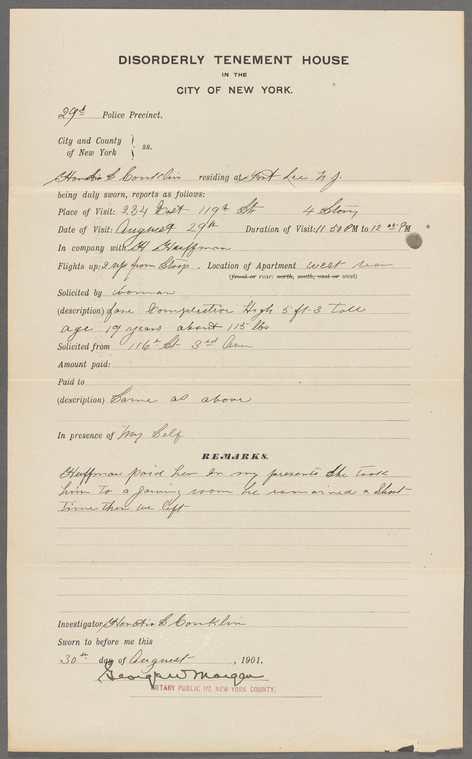 DISORDERLY TENEMENT HOUSE
IN THE
CITY OF NEW YORK.
29th Police Precinct.
City and County
of New York } ss.
Horatio S Conklin residing at Fort Lee N J.
being duly sworn, reports as follows:
Place of Visit: 234 East 119th St 4 Story
Date of Visit: August 29th Duration of Visit: 11 50 PM to 12 05 PM
In company with H Huffman
Flights up: 2 up from Stoop. Location of Apartment west rear
(front or rear: north, south, east or west)
Solicited by woman
(description) Complection High 5 ft 3 tall
age 19 years about 115 lbs
Solicited from 116th St 3rd Ave
Amount paid:
Paid to
(description) Same as above
In presence of My Self
REMARKS.
Huffman paid her in my presents She took
him to a joining room he remained a Short
Time then we left
Investigator, Horatio S Conklin
Sworn to before me this
30th day of August, 1901.
George W Morgan
NOTARY PUBLIC 177, NEW YORK COUNTY.